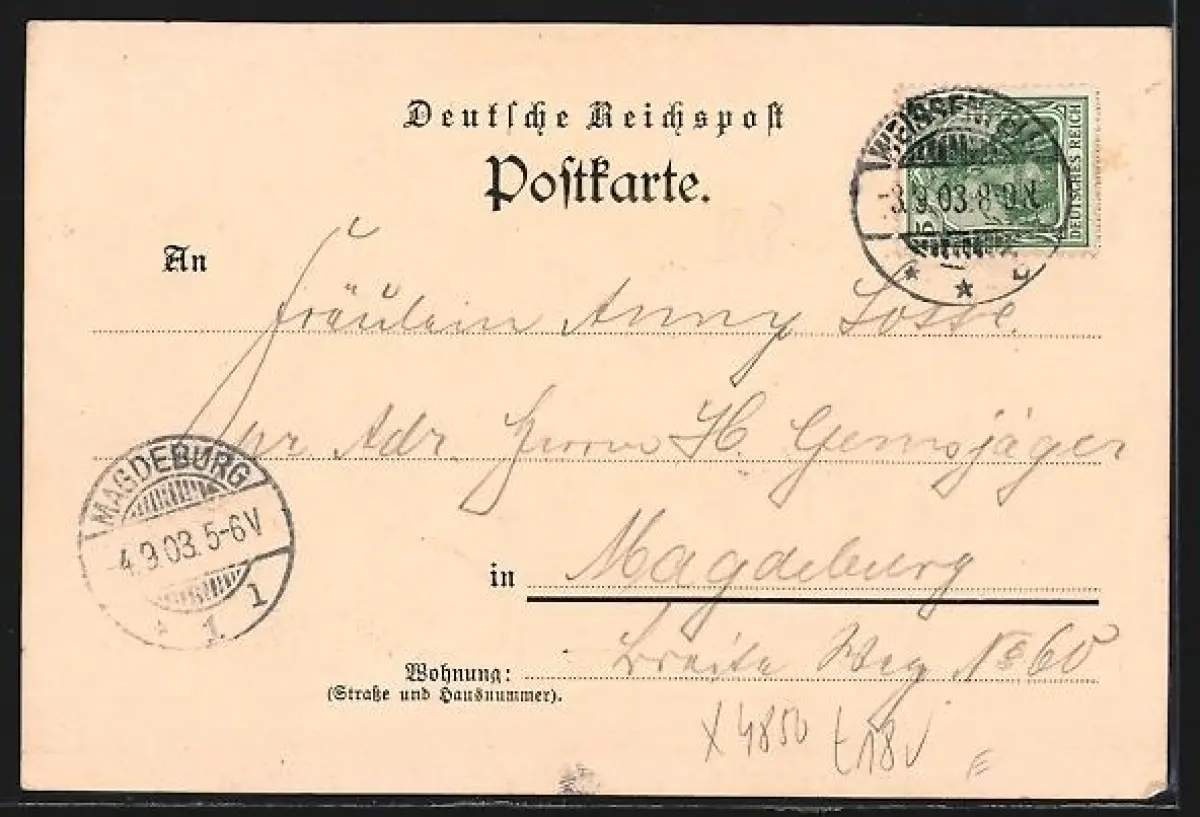 Deutsche Reichspost
Postkarte.
WEISSENFELS
3.9.03. 8-9N.
DEUTSCHES REICH
An
Fräulein Anny Sosse.
pr. Adr. Herrn H. Gemsjäger
MAGDEBURG
4.9.03. 5-6V
* 1. 1
in Magdeburg
Breite Weg No 60
Wohnung:
(Straße und Hausnummer).
X 4850 t18v